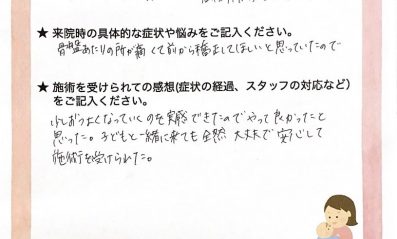 ★ 来院時の具体的な症状や悩みをご記入ください。
骨盤あたりの所が痛くて前から矯正してほしいと思っていたので
★ 施術を受けられての感想(症状の経過、スタッフの対応など)
をご記入ください。
少しずつよくなっていくのを実感できたのでやって良かったと
思った。子どもと一緒に来ても全然大丈夫で安心して
施術を受けられた。